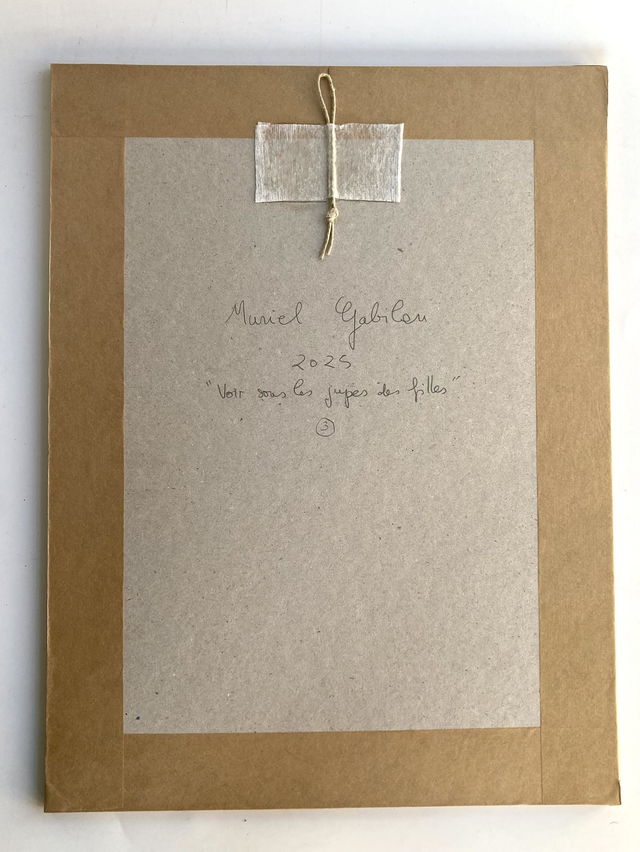 Muriel Gabilan
2025
"Voir sous les jupes des filles"
3